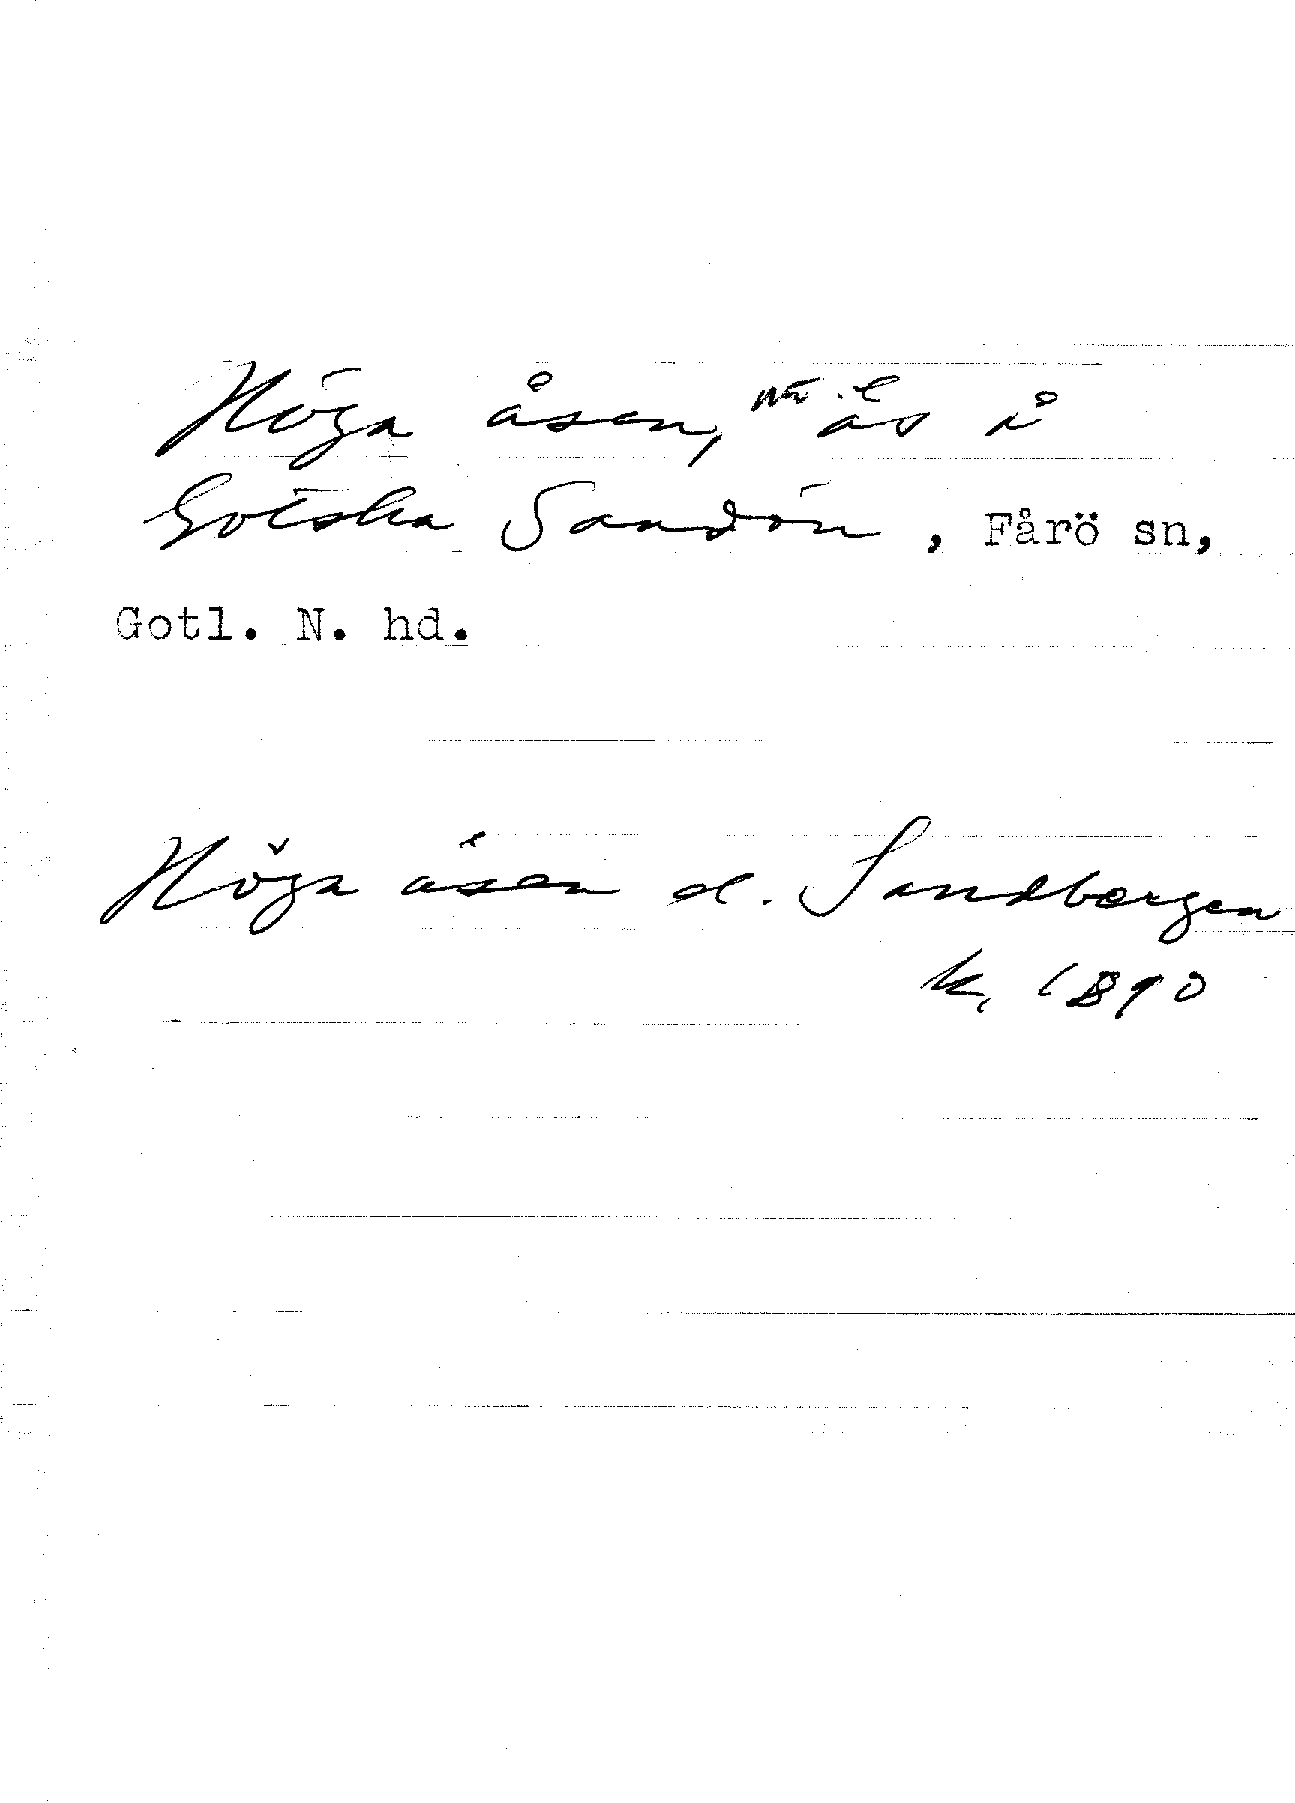 Höga åsen, ås å
Gotska Sandön, Fårö sn,
Gotl. N. hd.
Höga åsen el. Sandbergen
k. 1890